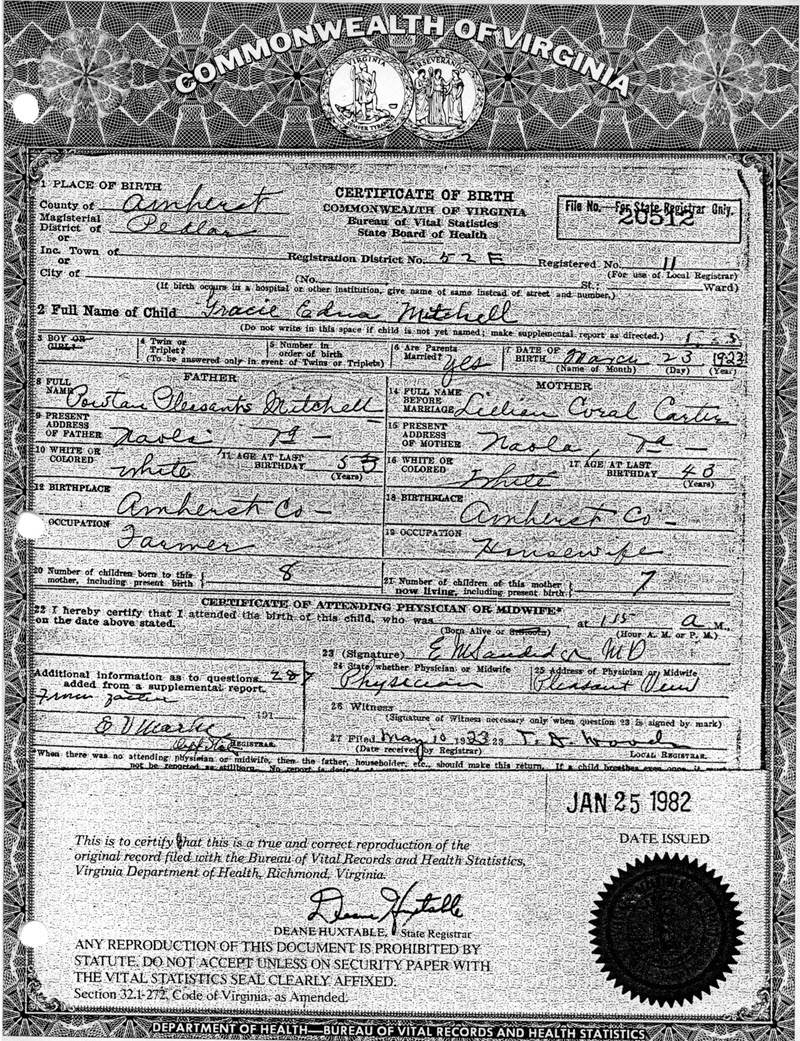 COMMONWEALTH OF VIRGINIA
VIRGINIA
PERSEVERANDO
1 PLACE OF BIRTH
County of Amherst
Magisterial
District of Pedlar
or
Inc. Town of
or
City of
CERTIFICATE OF BIRTH
COMMONWEALTH OF VIRGINIA
Bureau of Vital Statistics
State Board of Health
File No.—For State Registrar Only.
20512
Registration District No. 52E Registered No. 11
(For use of Local Registrar)
(No. St.; Ward)
(If birth occurs in a hospital or other institution, give name of same instead of street and number.)
2 Full Name of Child Gracie Edna Mitchell
(Do not write in this space if child is not yet named; make supplemental report as directed.)
3 BOY OR GIRL?
4 Twin or Triplet?
5 Number in order of birth
(To be answered only in event of Twins or Triplets)
6 Are Parents Married? yes
7 DATE OF BIRTH March 23 1923
(Name of Month) (Day) (Year)
FATHER
8 FULL NAME Powtan Pleasants Mitchell
9 PRESENT ADDRESS OF FATHER Naola Va —
10 WHITE OR COLORED White
11 AGE AT LAST BIRTHDAY 53 (Years)
12 BIRTHPLACE
Amherst Co —
OCCUPATION
Farmer
MOTHER
14 FULL NAME BEFORE MARRIAGE Lillian Coral Carter
15 PRESENT ADDRESS OF MOTHER Naola, Va —
16 WHITE OR COLORED White
17 AGE AT LAST BIRTHDAY 43 (Years)
18 BIRTHPLACE
Amherst Co —
19 OCCUPATION
Housewife
20 Number of children born to this mother, including present birth 8
21 Number of children of this mother now living, including present birth 7
CERTIFICATE OF ATTENDING PHYSICIAN OR MIDWIFE*
22 I hereby certify that I attended the birth of this child, who was at 1 15 a M.,
on the date above stated. (Born Alive or Stillborn) (Hour A. M. or P. M.)
23 (Signature) E M Sandidge MD
24 State whether Physician or Midwife
Physician
25 Address of Physician or Midwife
Pleasant View
26 Witness
(Signature of Witness necessary only when question 23 is signed by mark)
27 Filed May 10 1923 28
(Date received by Registrar)
T. D. Wood
LOCAL REGISTRAR.
Additional information as to questions 2 & 7
added from a supplemental report.
From
191
REGISTRAR.
When there was no attending physician or midwife, then the father, householder, etc., should make this return. If a child breathes even once it must
not be reported as stillborn. No report is desired
JAN 25 1982
DATE ISSUED
This is to certify that this is a true and correct reproduction of the
original record filed with the Bureau of Vital Records and Health Statistics,
Virginia Department of Health, Richmond, Virginia.
Deane Huxtable
DEANE HUXTABLE, State Registrar
ANY REPRODUCTION OF THIS DOCUMENT IS PROHIBITED BY
STATUTE. DO NOT ACCEPT UNLESS ON SECURITY PAPER WITH
THE VITAL STATISTICS SEAL CLEARLY AFFIXED.
Section 32.1-272, Code of Virginia, as Amended.
DEPARTMENT OF HEALTH—BUREAU OF VITAL RECORDS AND HEALTH STATISTICS